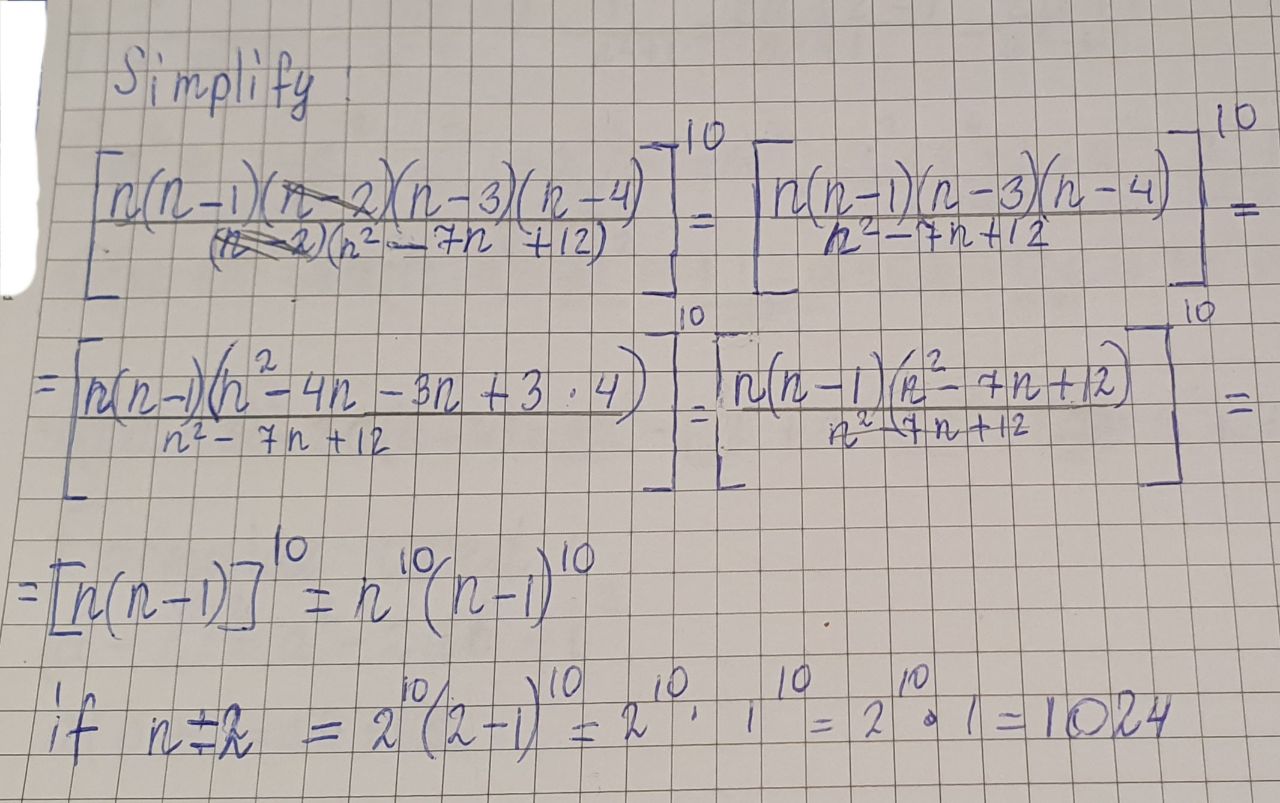 Simplify!
[n(n-1)(n-2)(n-3)(n-4) / (n-2)(n²-7n+12)]¹⁰ = [n(n-1)(n-3)(n-4) / n²-7n+12]¹⁰ =
= [n(n-1)(n²-4n-3n+3·4) / n²-7n+12]¹⁰ = [n(n-1)(n²-7n+12) / n²-7n+12]¹⁰ =
= [n(n-1)]¹⁰ = n¹⁰(n-1)¹⁰
if n=2 = 2¹⁰(2-1)¹⁰ = 2¹⁰·1¹⁰ = 2¹⁰·1 = 1024